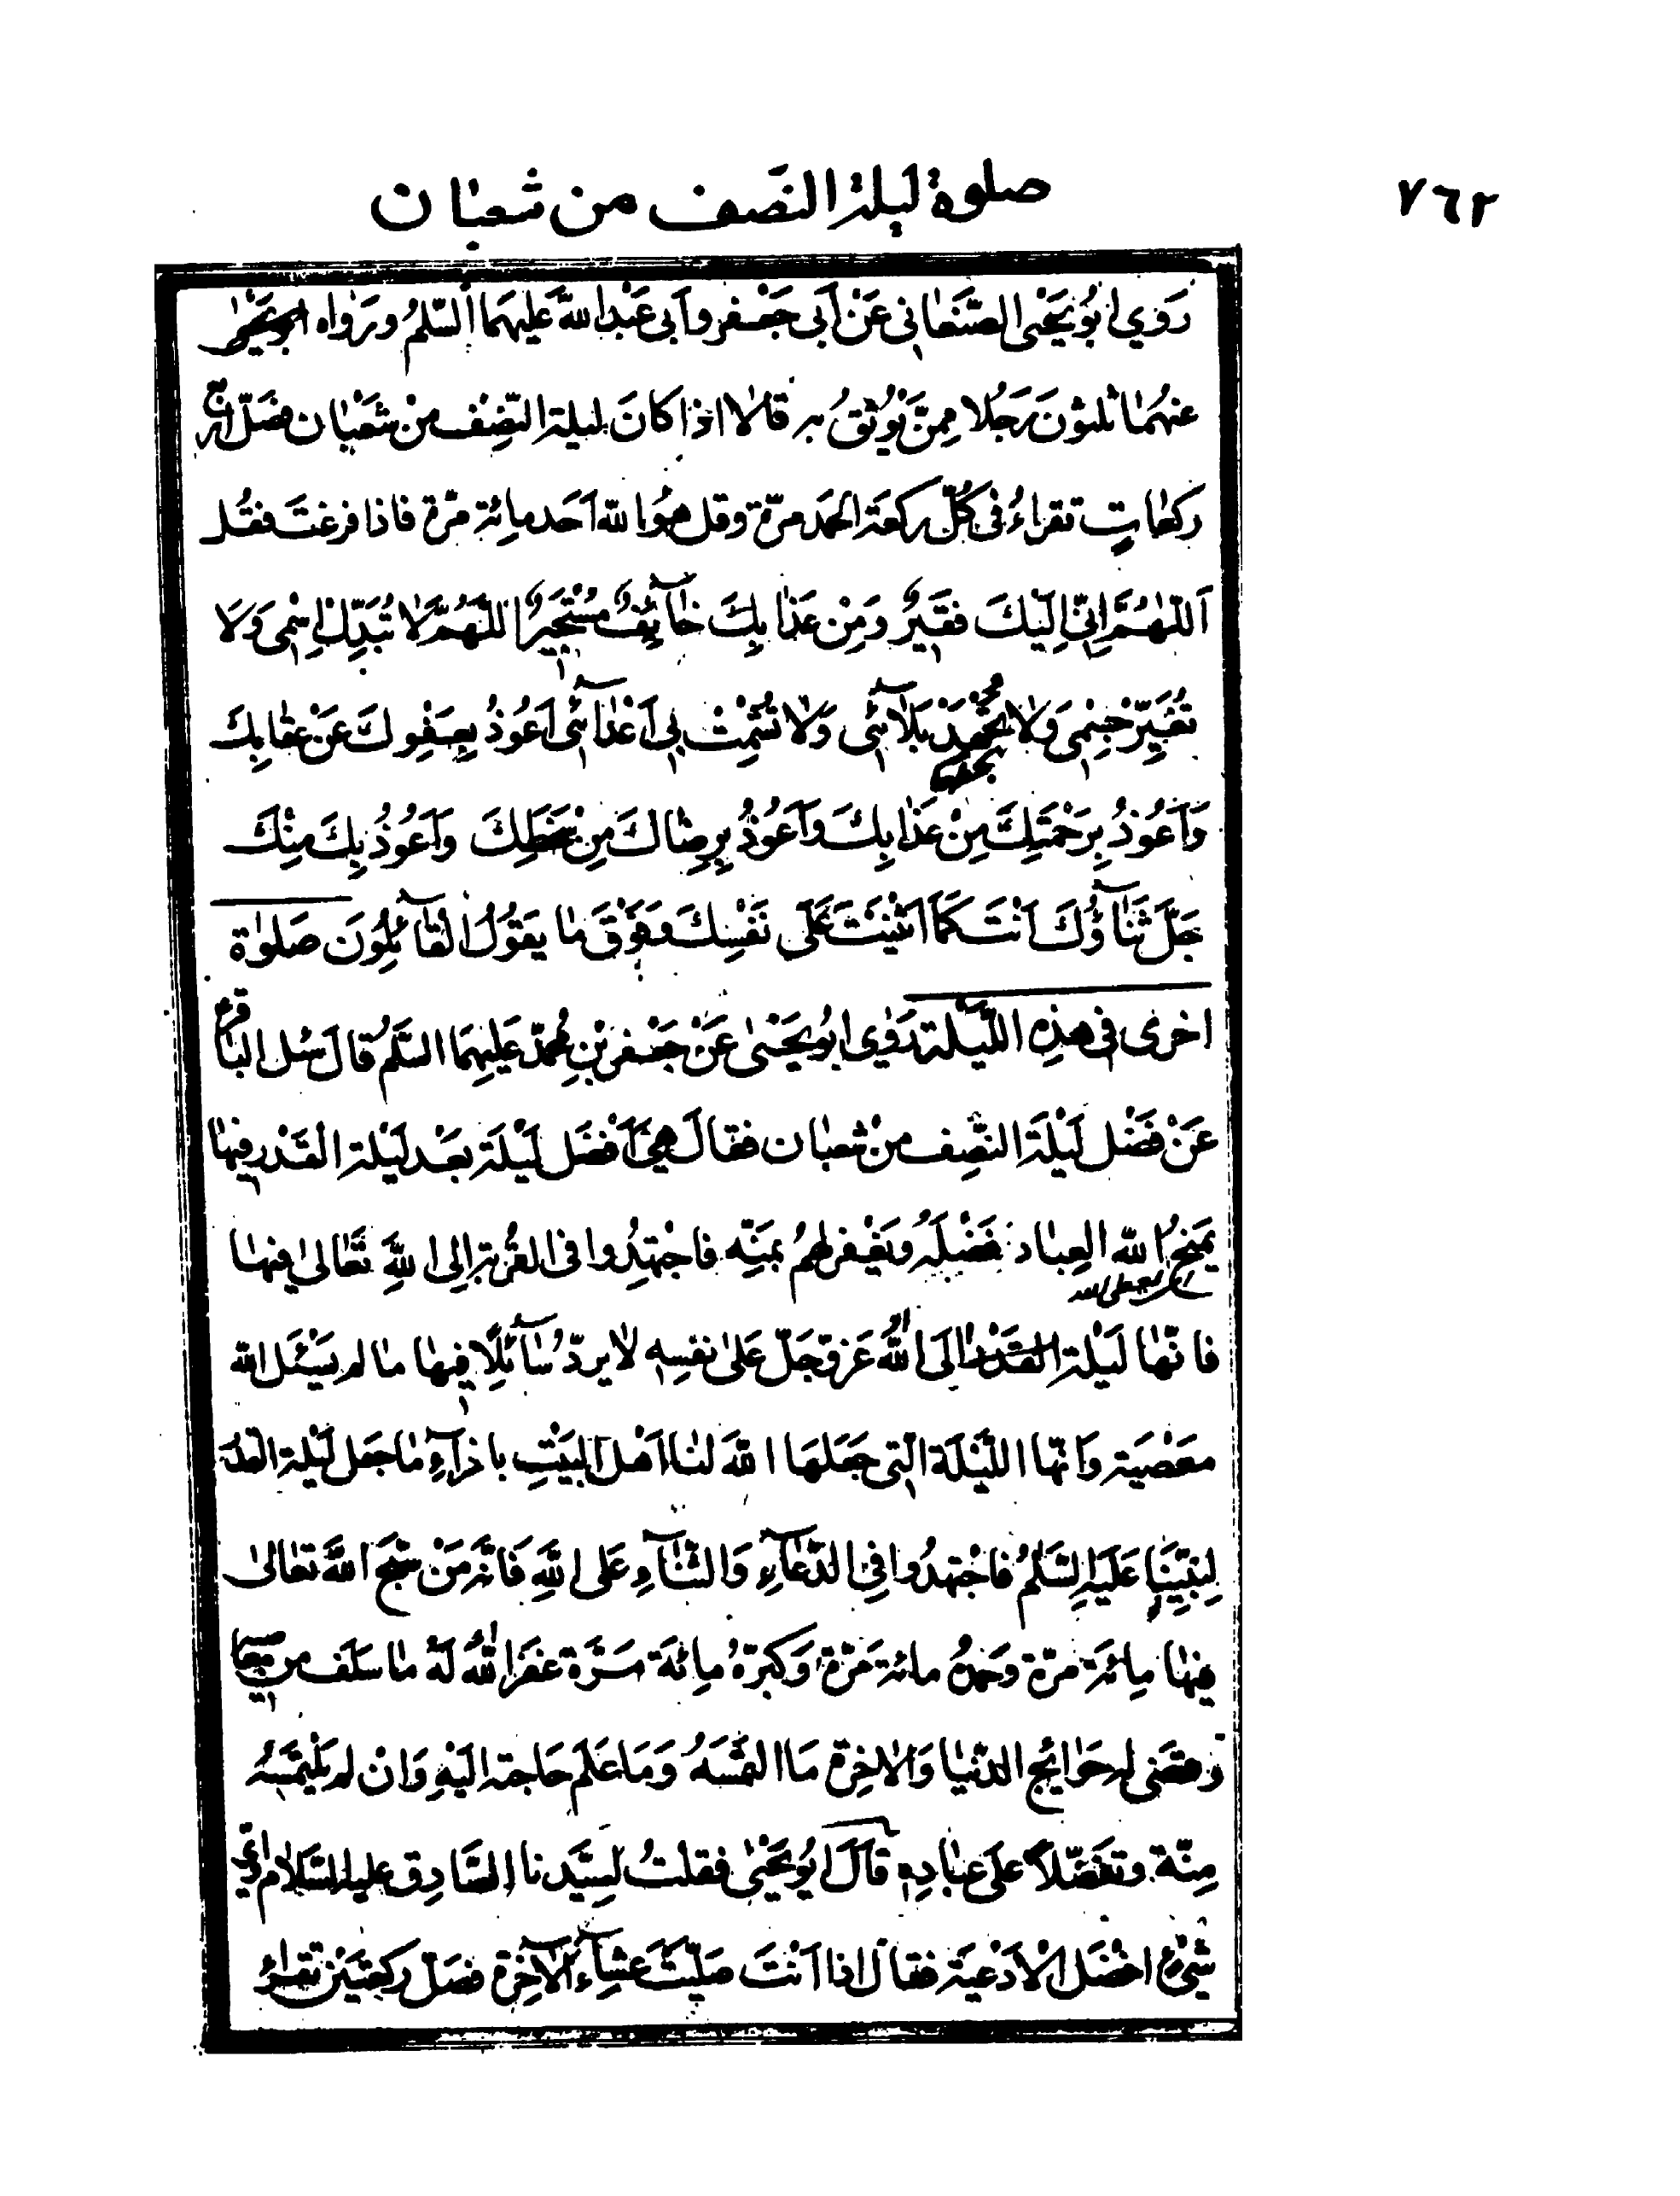 ٧٦٢
صلوة ليلة النصف من شعبان
رَوي ابُو يَحْيى الصَّنعاني عَنْ أبى جَعْفر وأبى عَبْدالله عَليهمَا السّلمُ ورَواه
عنهُما ثلثونَ رَجُلا مِمنْ يُوثَقُ به قالا اذا كانَ ليلة النّصْف منْ شَعْبان فصَلّ اربع
ركعاتٍ تقراءُ فى كُلّ ركعَة الحَمد مرّة وقل هُوَ الله اَحَد مائة مرّة فاذا فرغتَ فقُل
اَللّهُمَّ اِنّى اِلَيْكَ فقَيرٌ وَمِنْ عَذابِكَ خآئِفٌ مُسْتَجيرٌ اللّهُمَّ لا تُبَدِّل اِسْمى وَلا
تُغَيِّر جِسْمى وَلا تُجْهِدْ بَلآئى وَلا تُشْمِتْ بى اَعْدآئى اَعُوذُ بِعَفْوِكَ عَنْ عِقابِكَ
وَاَعُوذُ بِرَحْمَتِكَ مِنْ عَذابِكَ وَاَعُوذُ بِرِضاكَ مِنْ سَخَطِكَ وَاَعُوذُ بِكَ مِنْكَ
جَلَّ ثَنآؤُكَ اَنْتَ كَمَا اَثْنَيْتَ عَلى نَفْسِكَ وَفَوْقَ ما يَقوُلُ القآئِلوُنَ صَلوٰة
اخرى فى هذِهِ اللّيْلَة رَوى ابُو يَحْيىٰ عَنْ جَعْفر بْنِ مُحمدّ عَليهِمَا السَّلمُ قالَ سئل الباقر ع
عَنْ فَضْل لَيْلَة النّصِف منْ شعبان فقالَ هِىَ اَفْضَل لَيْلَة بَعْد لَيْلة القَدْر فيها
يَمنحُ الله العِباد فَضْلَهُ ويَغْفر لهُمْ بمَنِّه فاجْتهِدُوا فى القُرْبة اِلى اللهِ تَعالى فيها
فانّها لَيْلة الى اللهُ عَزّ وَجَلّ عَلىٰ نفسِه لا يردّ سآئِلًا فيها ما لم يَسْئَل الله
معَصْيَة وَانّها اللّيْلَة الّتى جَعَلَها اللهَ لنا اَهْل البَيْتِ باذرآءِ ما جعَل لَيْلة القدَر
لِنَبِيِّنا عَلَيْهِ السَّلمُ فاجْتهدُوا فِى الدّعآءِ وَالثَّنآءِ عَلى اللهِ فَانّه مَنْ سَبَّحَ اللهَ تعَالىٰ
فيها مِائة مرّة وحمَدهُ مائة مَرّة وَكبّرهُ مِائَة مَرَّة غفَرَ اللهُ لَهُ ما سَلَف من
وقضى له حَوائِج الدّنْيا وَالاخِرة مَا التمَسَهُ وَمَا عَلمَ حَاجته اِلَيْهِ وَانْ لم يَلْتَمِسْهُ
مِنّة وتفَضّلاً عَلى عِبادِهِ قالَ ابُو يَحْيىٰ فقلتُ لِسيّدنا الصّادِق عليه السَّلام اىّ
شَىْءٍ افْضَل الاَدْعية فقالَ اذا اَنْتَ صَلّيْتَ عِشآءَ الآخِرة فصَلّ ركعتيْن تقراءُ